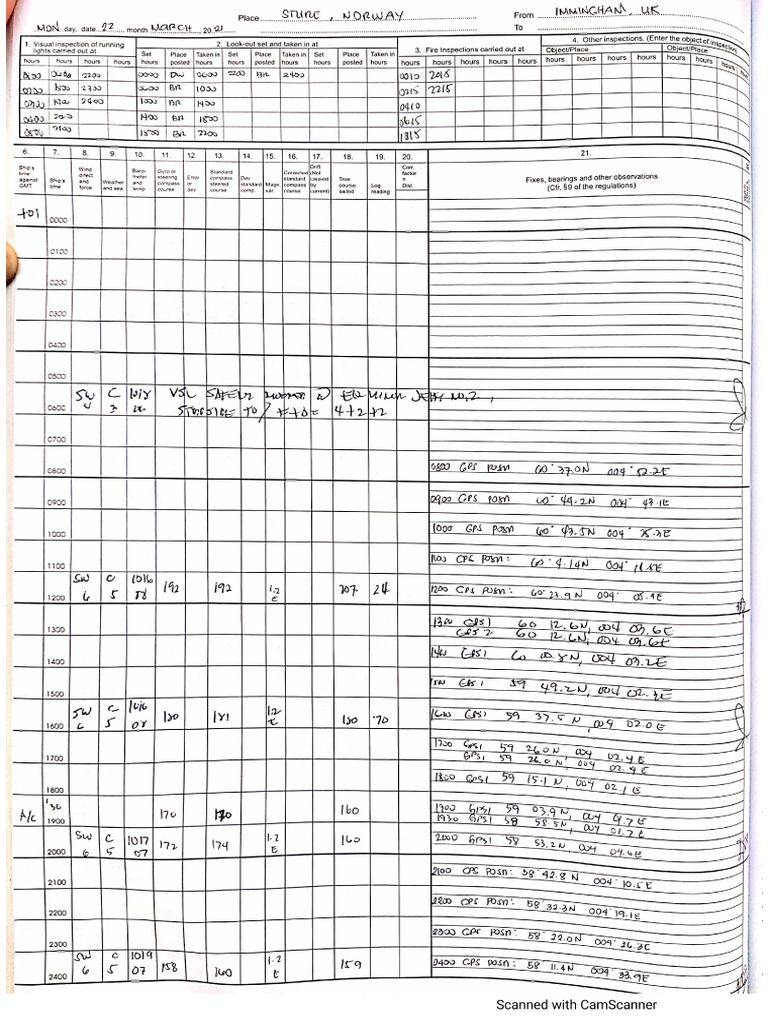 Place STURE, NORWAY From IMMINGHAM, UK
MON day, date 22 month MARCH, 2021 To
1. Visual inspection of running lights carried out at
2. Look-out set and taken in at
3. Fire Inspections carried out at
4. Other inspections. (Enter the object of inspection)
Object/Place Object/Place
hours hours hours hours Set hours Place posted Taken in hours Set hours Place posted Taken in hours Set hours Place posted Taken in hours hours hours hours hours hours hours hours hours hours hours
2200 0000 0600 2200 BR 2400 0010 2015
0600 BR 1000 0215 2215
2400 1000 BR 1400 0410
1400 BR 1800 0615
1800 BR 2200 1815
6. 7. 8. 9. 10. 11. 12. 13. 14. 15. 16. 17. 18. 19. 20. 21.
Ship's time against GMT
Ship's time
Wind direct and force
Weather and sea
Barometer and temp.
Gyro or steering compass course
Error or dev.
Standard compass steered course
Dev. standard comp.
Magn. var.
Corrected standard compass course
Drift (Not caused by current)
True course sailed
Log reading
Corr. factor = Dist.
Fixes, bearings and other observations
(Cfr. §9 of the regulations)
+01 0000
0100
0200
0300
0400
0500
SW C 1018 VSL SAFELY JETTY NO. 2,
0600 3 4+2+2
0700
0800 0800 GPS POSN 60° 37.0N 004° 52.2E
0900 0900 GPS POSN 60° 44.2N 004° 43.1E
1000 1000 GPS POSN 60° 43.5N 004°
1100 1100 GPS POSN: 60° 004°
SW C 1016 192 192 1.2 207 24
1200 6 5 E 1200 GPS POSN: 60° 23.9N 004°
1300 1300 GPS1 60 12.6N, 004 03.6E
GPS 2 60 12.6N, 004 03.6E
1400 1400 GPS1 60 00.8N, 004 03.2E
1500 GPS1 59 49.2N, 004 02.3E
SW C 1016 180 181 1.2 180 70
1600 6 5 08 E 1600 GPS1 59 37.5N, 004 02.0E
1700 1700 GPS1 59 26.0N, 004 02.4E
GPS1 59 26.0N, 004 02.4E
1800 1800 GPS1 59 15.1N, 004 02.1E
A/c '30 1900 170 170 160 1900 GPS1 59 03.9N, 004
1930 GPS1 58 58.5N, 004 01.7E
SW C 1017 172 174 1.2 160
2000 6 5 07 E 2000 GPS1 58 53.2N, 004 04.6E
2100 2100 GPS POSN: 58° 42.8N 004° 10.5E
2200 2200 GPS POSN: 58° 32.3N 004° 19.1E
2300 2300 GPS POSN: 58° 22.0N 004° 26.3E
SW C 1019 158 160 1.2 159
2400 6 5 07 E GPS POSN: 58° 11.4N 004° 33.9E
Scanned with CamScanner